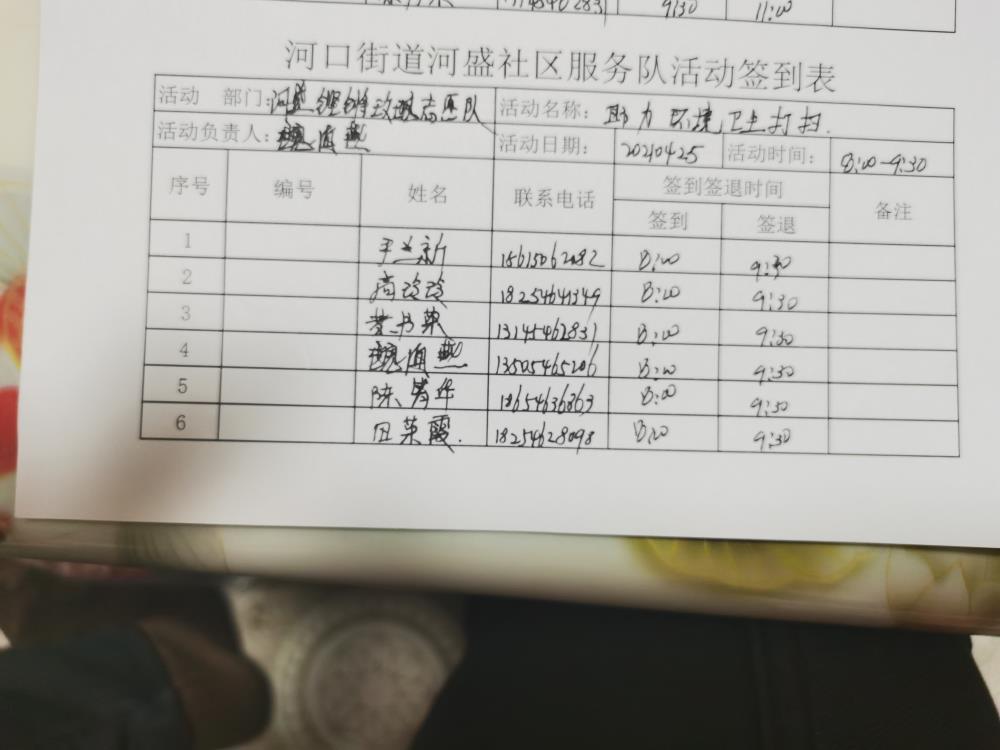 9:30 11:00
河口街道河盛社区服务队活动签到表
活动 部门: 河盛 志愿队 活动名称: 助力环境卫生打扫.
活动负责人: 活动日期: 20210425 活动时间: 8:00-9:30
序号 编号 姓名 联系电话 签到签退时间 备注
签到 签退
1 王兰新 15615062082 8:00 9:30
2 尚玲玲 18254641349 8:00 9:30
3 13145462831 8:00 9:30
4 13505465206 8:00 9:30
5 陈 华 18654636863 8:00 9:30
6 田荣霞. 18254628098 8:00 9:30